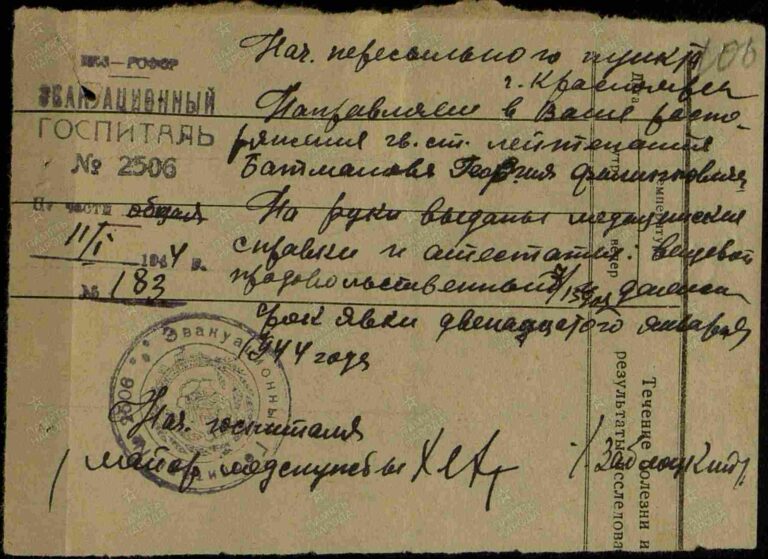 НКЗ—РСФСР
ЭВАКУАЦИОННЫЙ
ГОСПИТАЛЬ
№ 2506
По части общая
11/I 1944 г.
№ 183
106
Нач. пересыльного пункта
г. Красноярск
Направляем в Ваше распо-
ряжения гв. ст. лейтенанта
Батманова Георгия
На руки выданы медицинские
справки и аттестаты: вещевой
продовольственный
Срок явки двенадцатого января
1944 года
Нач. госпиталя
майор медслужбы
/Заблоцкий/
Эвакуационный
2506
Дата
температура
Течение болезни и
результаты исследова